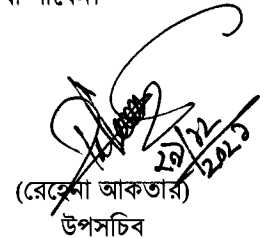 ২৭/১২
২০২১
(রেহেনা আকতার)
উপসচিব